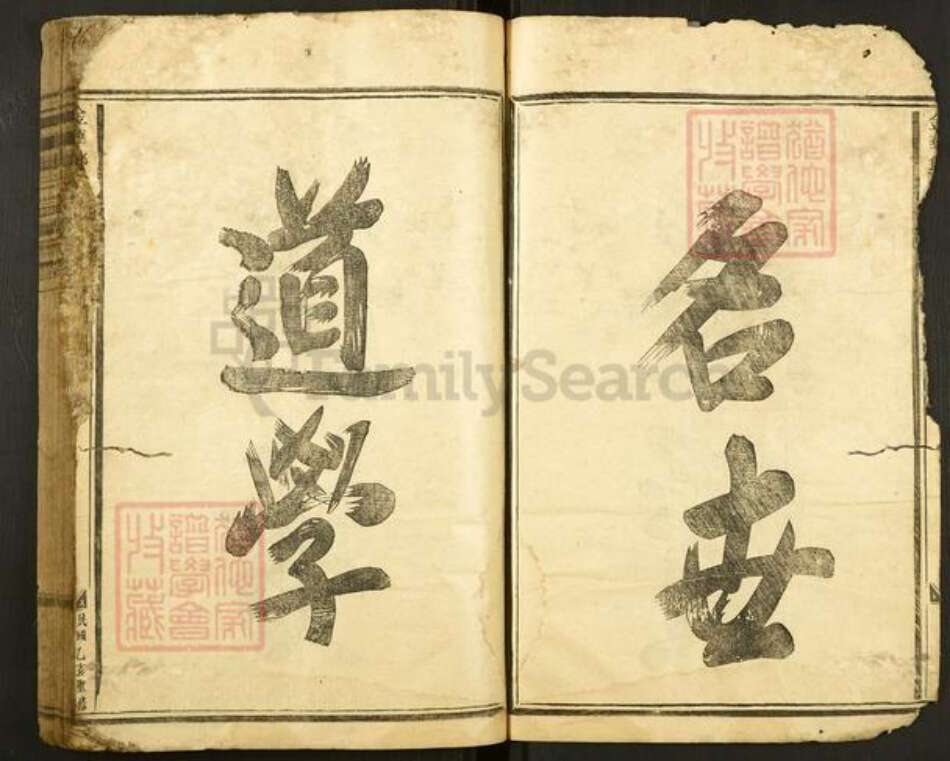 名世
道學
猶他家
譜學會
收藏
猶他家
譜學會
收藏
FamilySearch
民國乙亥重修